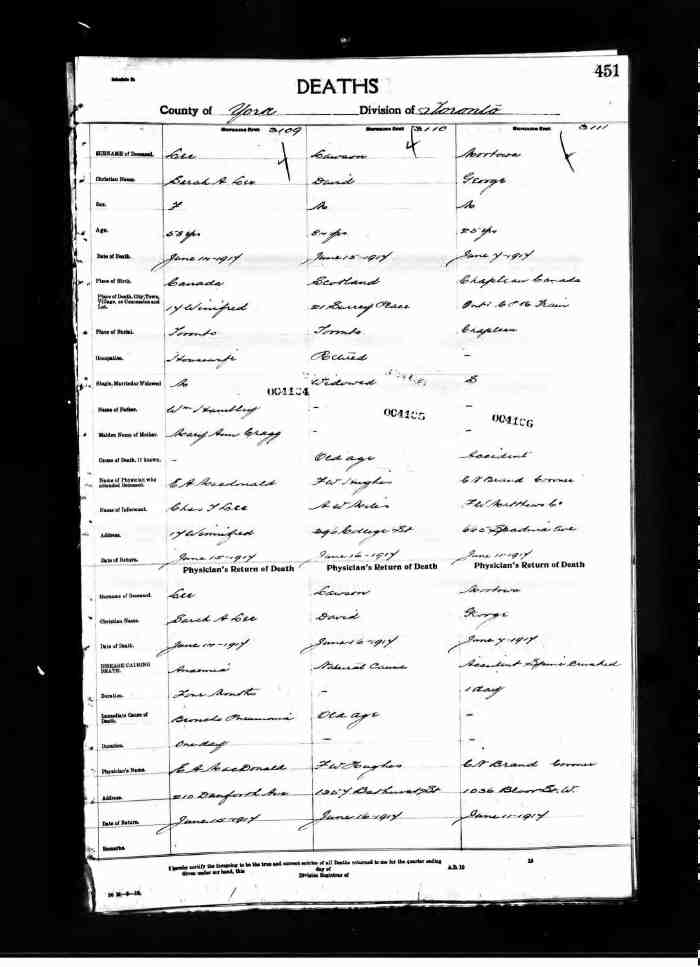 Schedule B.
451
DEATHS
County of York Division of Toronto
3109 3110 3111
SURNAME of Deceased. Lee Lawson
Christian Name. Sarah A Lee David George
Sex. F M M
Age. 53 yrs 84 yrs 25 yrs
Date of Death. June 14-1917 June 15-1917 June 7-1917
Place of Birth. Canada Scotland Chapleau Canada
Place of Death, City, Town, Village, or Concession and Lot. 17 Winnifred 21 Surrey Place Train
Place of Burial. Toronto Toronto Chapleau
Occupation. Housewife Retired -
Single, Married or Widowed M Widowed S
004104 004105 004106
Name of Father. Wm Hambly - -
Maiden Name of Mother. Mary Ann Cragg - -
Cause of Death, if known. - Old age Accident
Name of Physician who attended Deceased. E A Macdonald F W Hughes C N Brand Coroner
Name of Informant. Chas F Lee A W Miles F W Matthews Co
Address. 17 Winnifred 396 College St 665 Spadina Ave
Date of Return. June 15-1917 June 16-1917 June 11-1917
Physician's Return of Death Physician's Return of Death Physician's Return of Death
Surname of Deceased. Lee Lawson
Christian Name. Sarah A Lee David George
Date of Death. June 14-1917 June 16-1917 June 7-1917
DISEASE CAUSING DEATH. Anaemia Natural Cause Accident Spine Crushed
Duration. Four Months - 1 day
Immediate Cause of Death. Broncho Pneumonia Old age -
Duration. One day - -
Physician's Name. E A MacDonald F W Hughes C N Brand Coroner
Address. 210 Danforth Ave 1207 Bathurst St 1036 Bloor St. W.
Date of Return. June 15-1917 June 16-1917 June 11-1917
Remarks.
I hereby certify the foregoing to be the true and correct entries of all Deaths returned to me for the quarter ending 19
Given under my hand, this day of A.D. 19
Division Registrar of